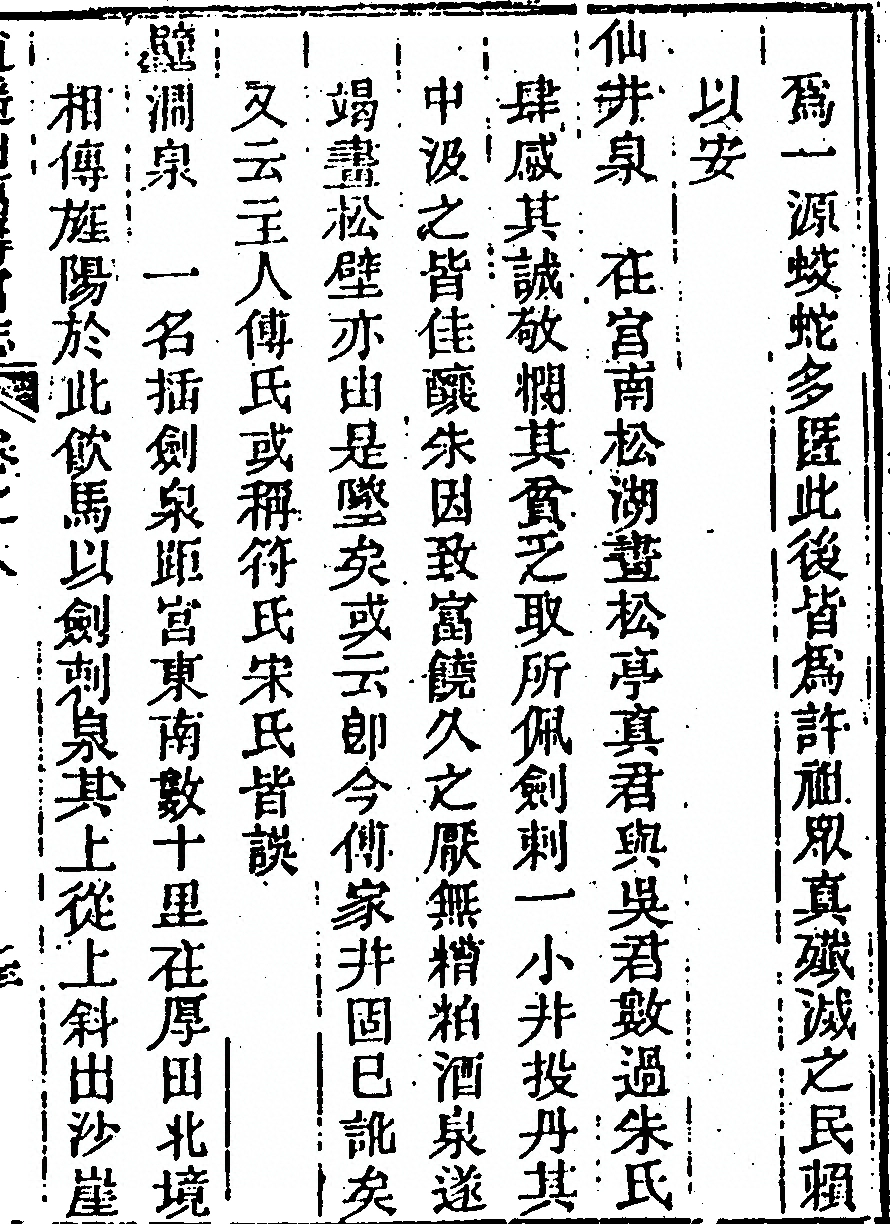 爲一源蛟蛇多匿此後皆爲許祖眾真殲滅之民賴
以安
仙井泉　在宮南松湖畫松亭真君與吳君數過朱氏
肆感其誠敬憫其貧乏取所佩劍刺一小井投丹其
中汲之皆佳釀朱因致富饒久之厭無糟粕酒泉遂
竭畫松壁亦由是墜矣或云卽今傅家井固已訛矣
又云主人傅氏或稱符氏宋氏皆誤
澗泉　一名插劍泉距宮東南數十里在厚田北境
相傳旌陽於此飲馬以劍刺泉其上從上斜出沙崖